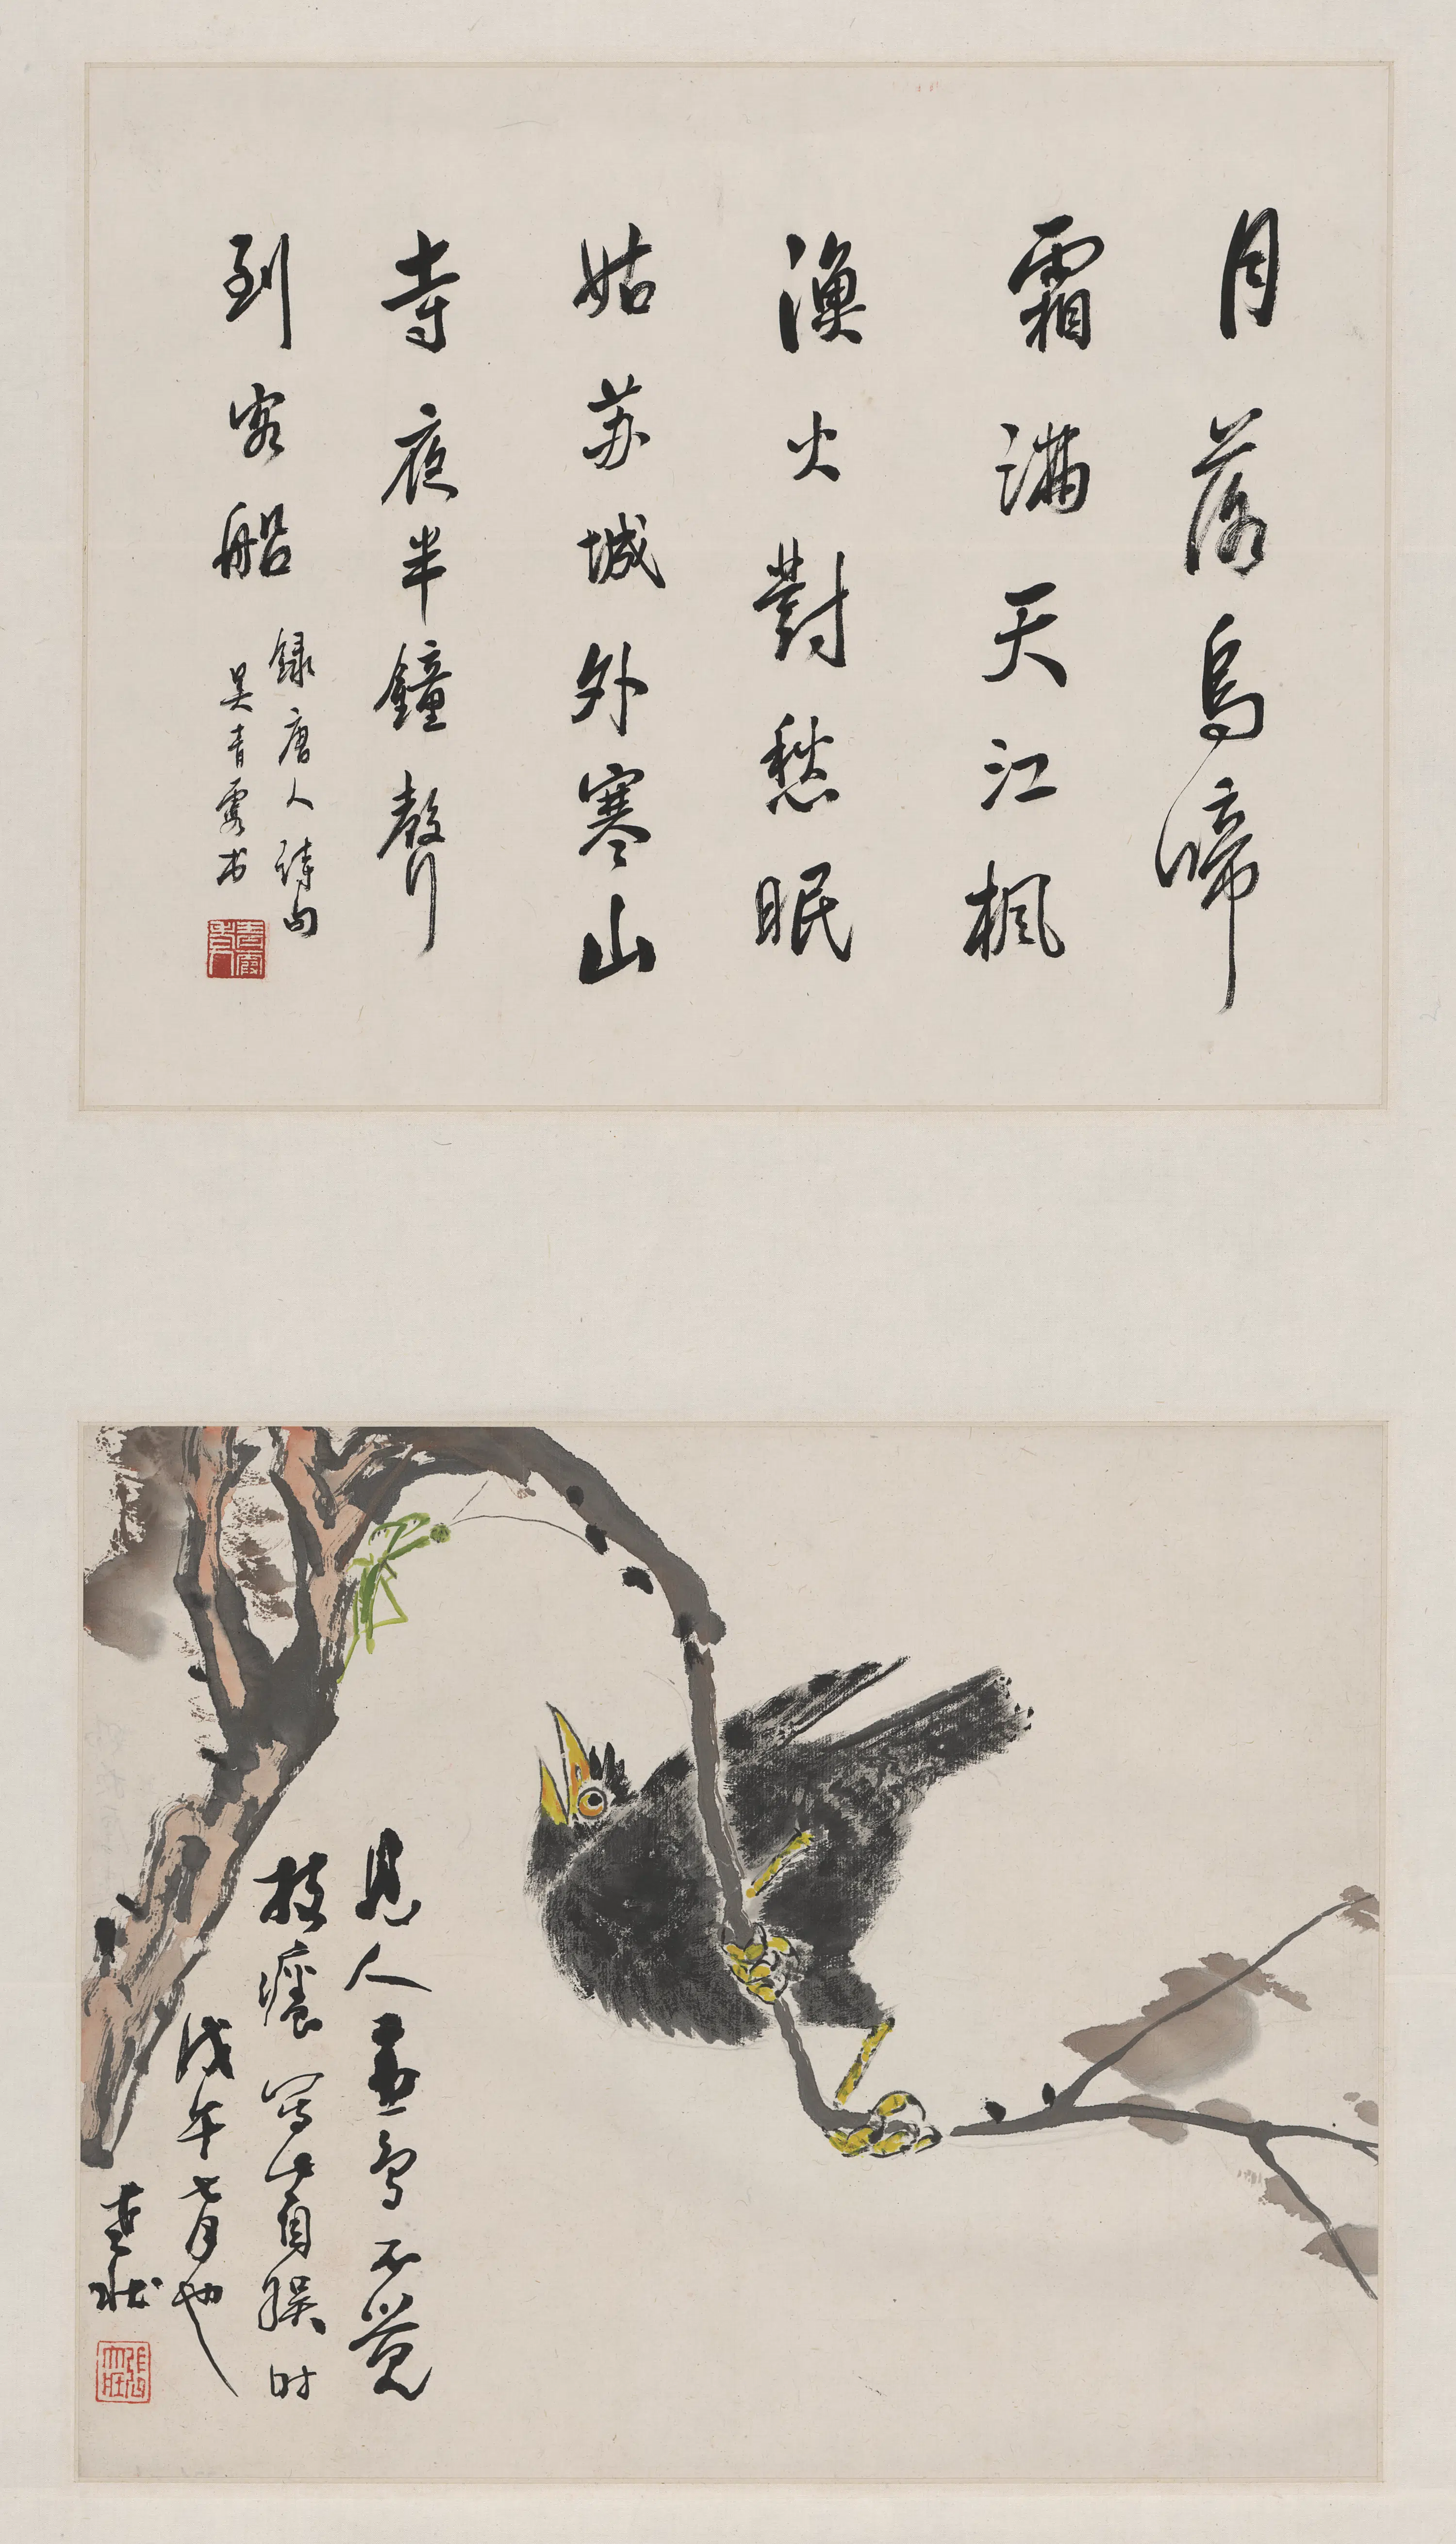 月落烏啼
霜滿天江楓
漁火對愁眠
姑苏城外寒山
寺夜半鐘聲
到客船
録唐人詩句
吴青霞书
見人画鸟不觉
技癢写此自娱时
戊午七月也
大壮